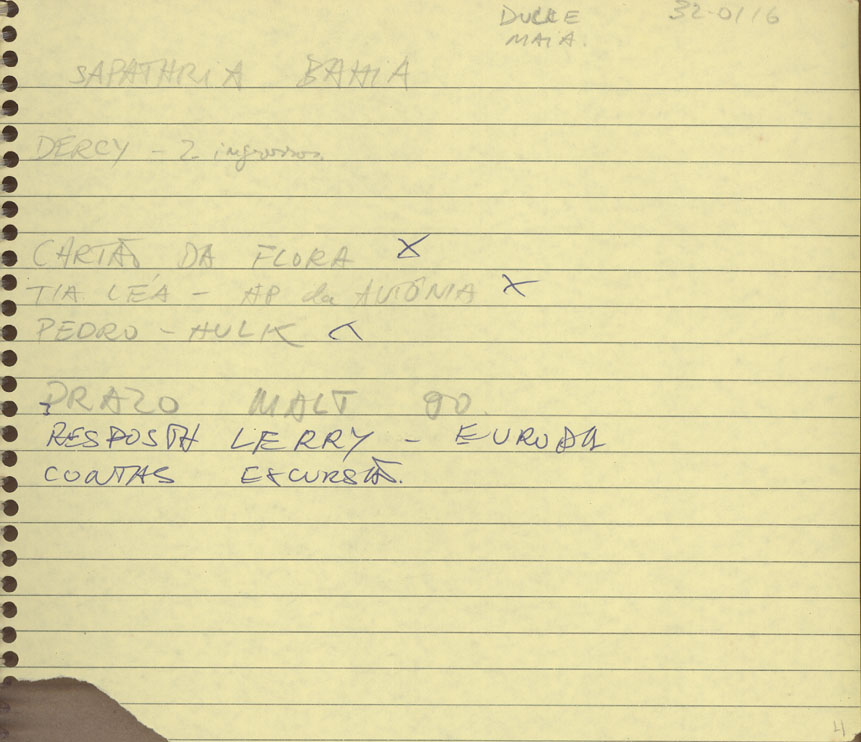 DULCE 32-0116
MAIA.
SAPATARIA BAHIA
DERCY - 2 ingressos.
CARTÃO DA FLORA X
TIA LÉA - AP da ANTÔNIA X
PEDRO - HULK
PRAZO MALT 90.
RESPOSTA LERRY - EUROPA
CONTAS EXCURSÃO.
4